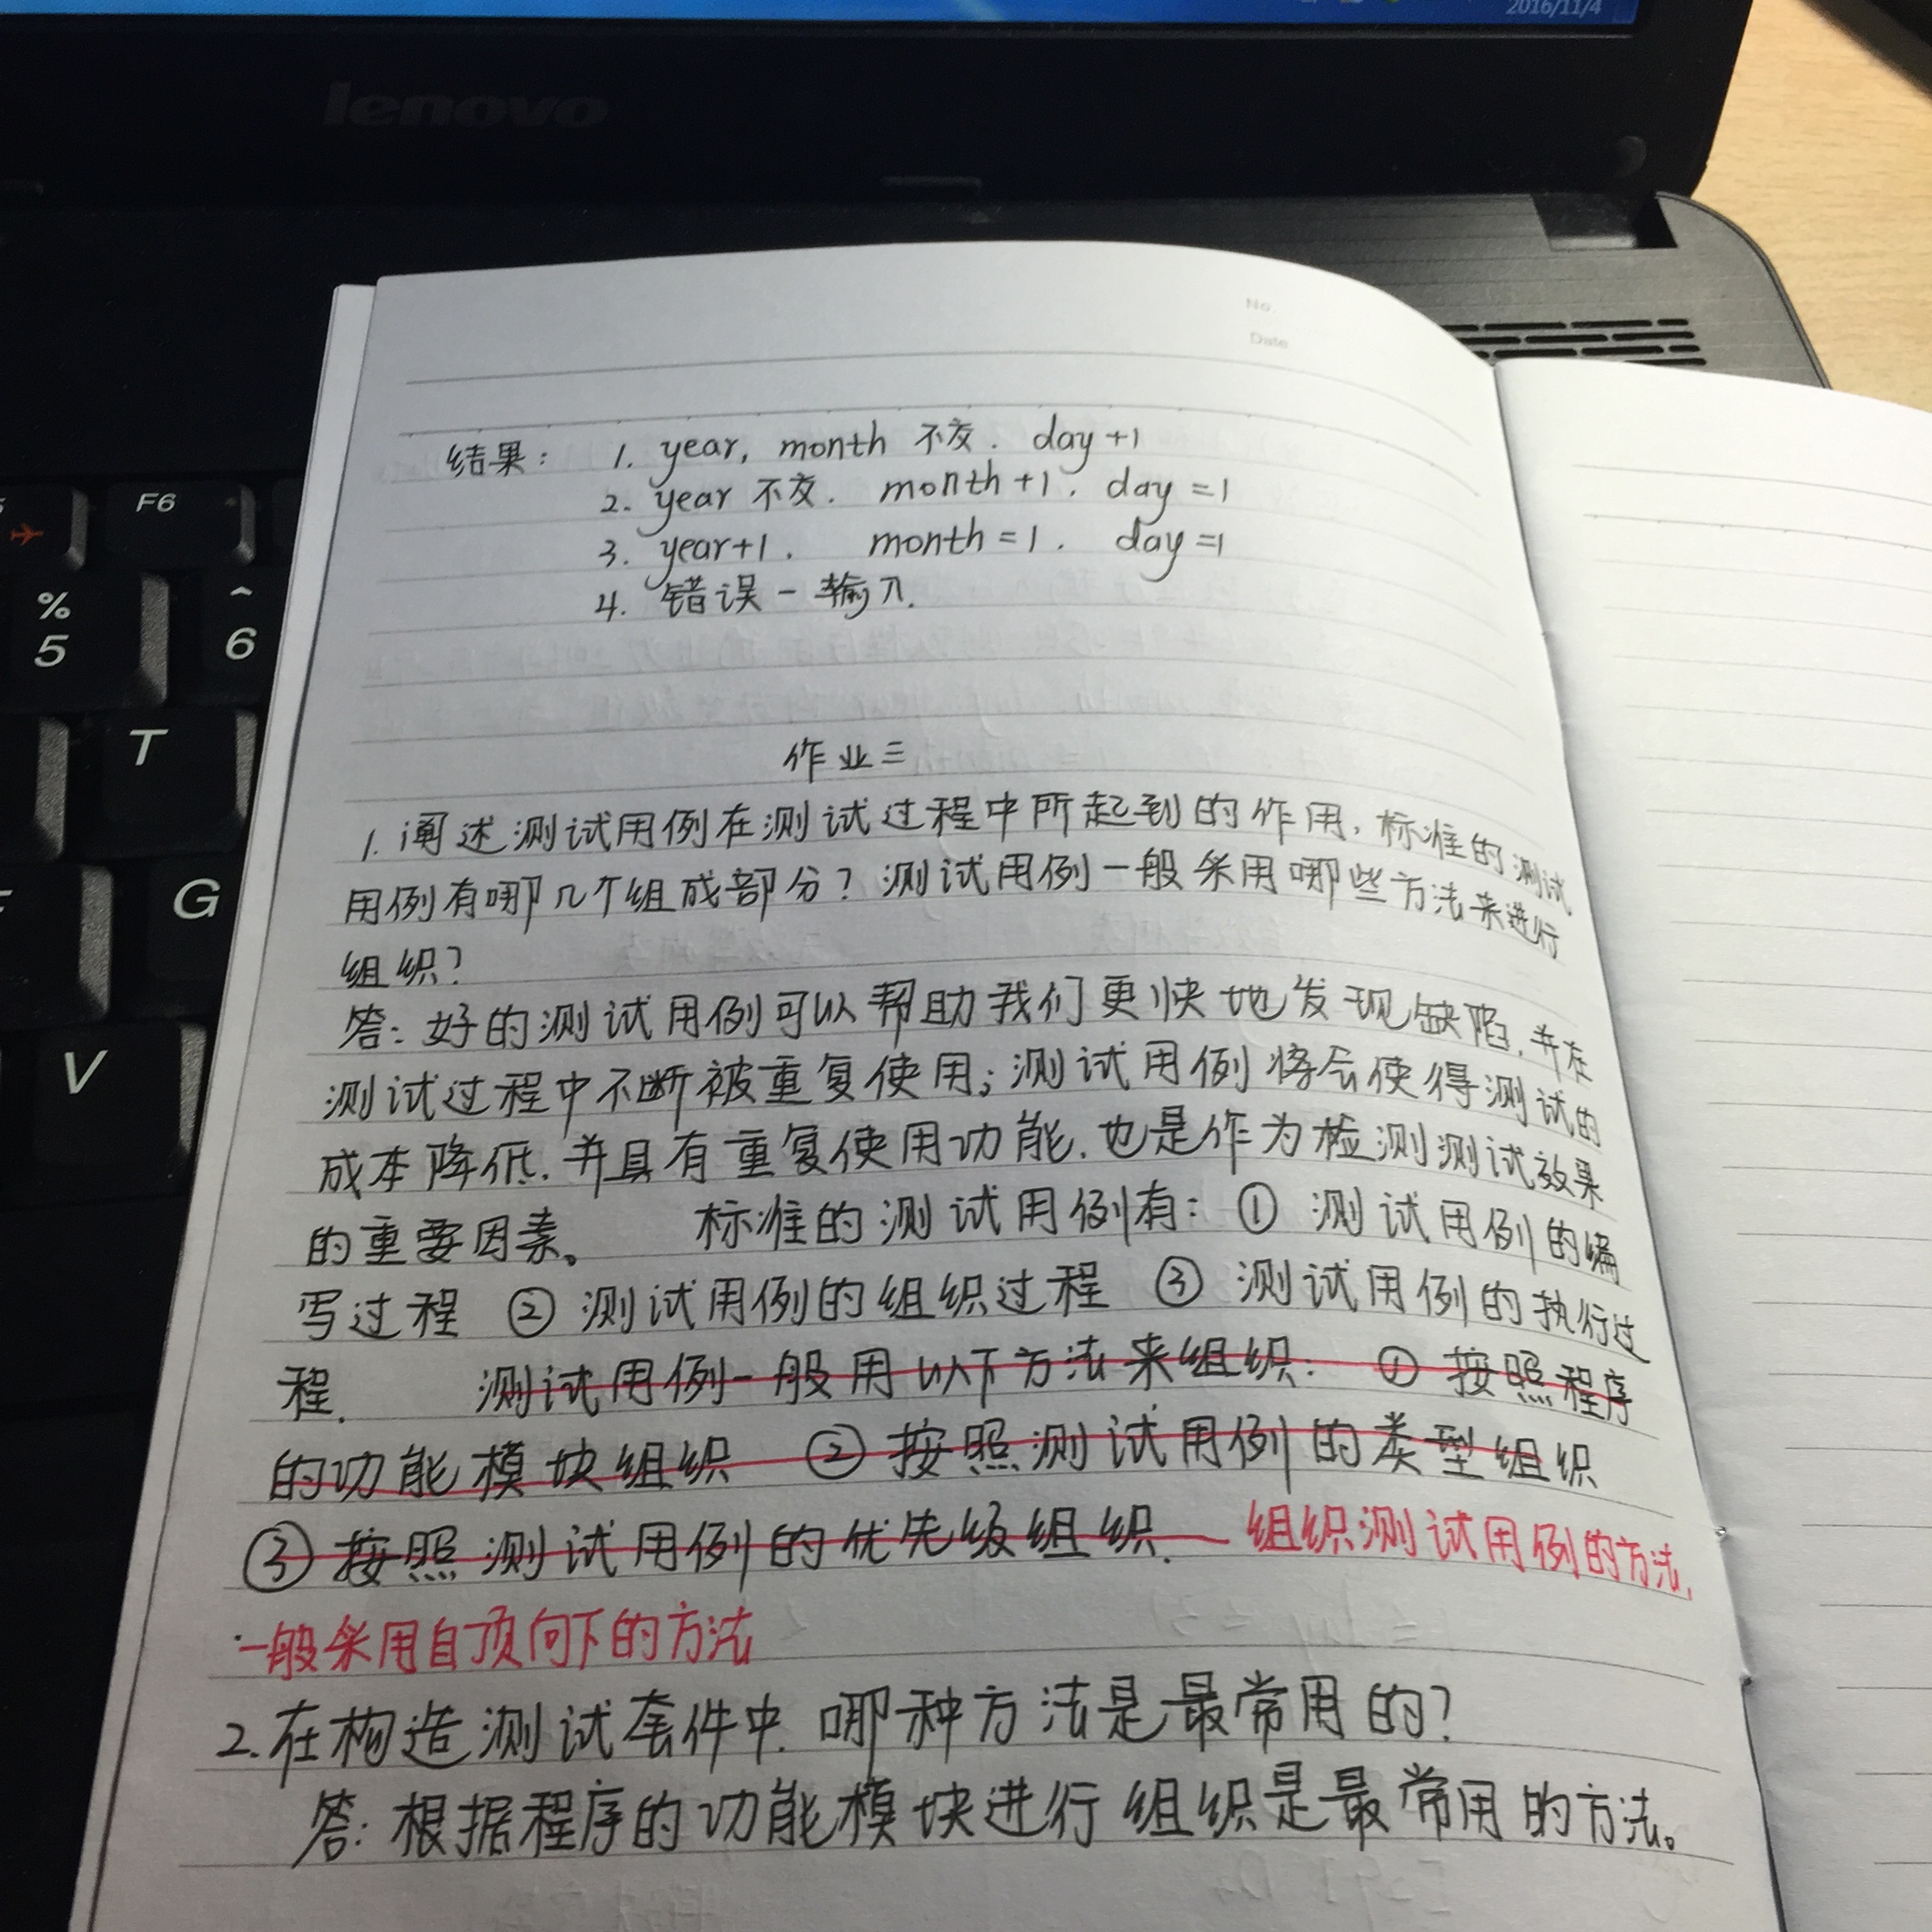 2016/11/4
lenovo
F6
% 5
^ 6
T
G
V
No
Date
结果： 1. year, month 不变. day+1
2. year 不变. month+1. day=1
3. year+1. month=1. day=1
4. 错误－输入.
作业三
1. 阐述测试用例在测试过程中所起到的作用, 标准的测试
用例有哪几个组成部分？测试用例一般采用哪些方法来进行
组织？
答：好的测试用例可以帮助我们更快地发现缺陷, 并在
测试过程中不断被重复使用；测试用例将会使得测试的
成本降低, 并具有重复使用功能, 也是作为检测测试效果
的重要因素。 标准的测试用例有：① 测试用例的编
写过程 ② 测试用例的组织过程 ③ 测试用例的执行过
程. 测试用例一般用以下方法来组织： ① 按照程序
的功能模块组织 ② 按照测试用例的类型组织
③ 按照测试用例的优先级组织. 组织测试用例的方法,
一般采用自顶向下的方法
2. 在构造测试套件中, 哪种方法是最常用的？
答：根据程序的功能模块进行组织是最常用的方法。